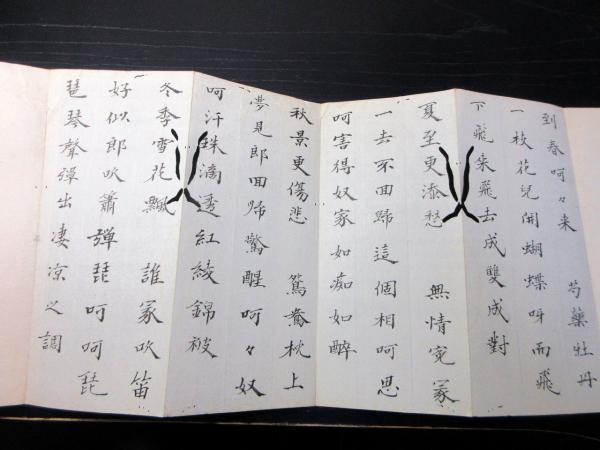 到春呵々来　芍藥牡丹
一枝花兒開蝴蝶呀而飛
下飛来飛去成雙成對
夏至更添愁　無情寃家
一去不回歸這個相呵思
呵害得奴家如痴如醉
秋景更傷悲　鴛鴦枕上
夢見郎回歸驚醒呵々奴
呵汗珠滴透紅綾錦被
冬季雪花飄　誰家吹笛
好似郎吹簫彈琵呵呵琵
琶琴聲彈出凄凉之調